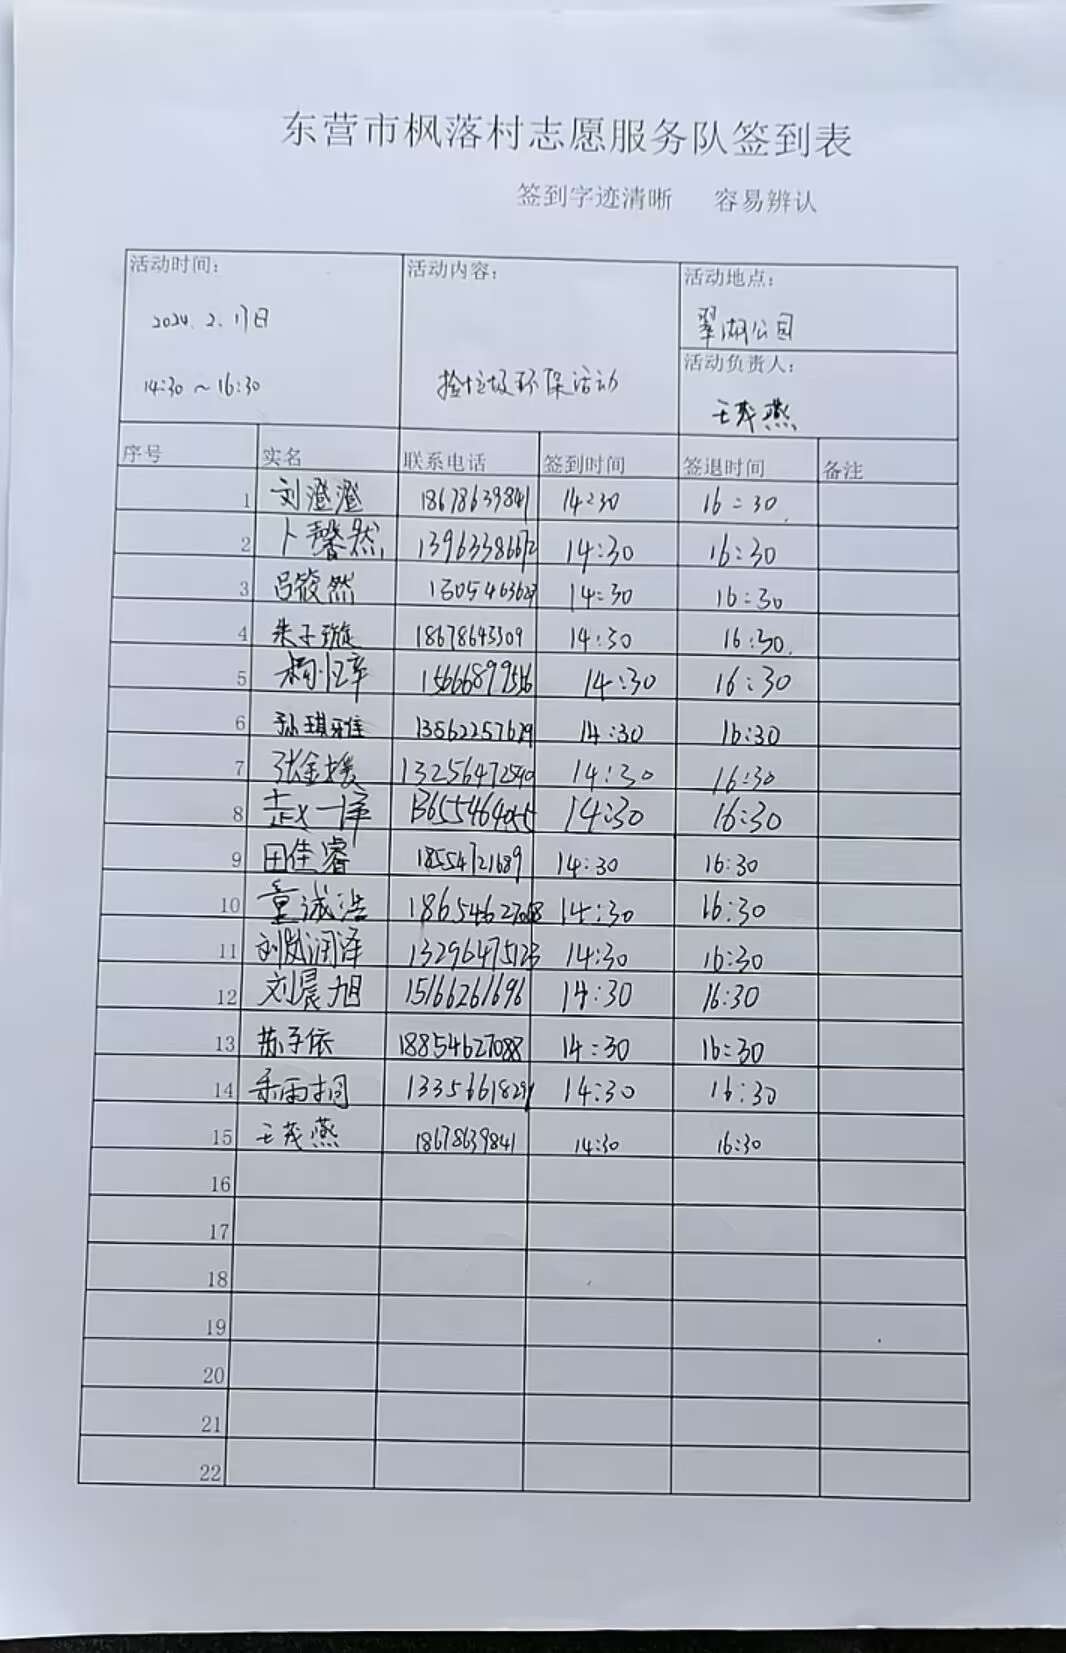 东营市枫落村志愿服务队签到表
签到字迹清晰 容易辨认
活动时间: 活动内容: 活动地点:
2024.2.17日 翠湖公园
活动负责人:
14:30~16:30 捡垃圾环保活动 王茂燕
序号 实名 联系电话 签到时间 签退时间 备注
1 刘澄澄 18678639841 14:30 16:30
2 卜馨然 14:30 16:30
3 吕筱然 14:30 16:30
4 朱子璇 18678643309 14:30 16:30
5 14:30 16:30
6 孙琪雅 14:30 16:30
7 张金媛 14:30 16:30
8 赵一泽 14:30 16:30
9 田佳睿 18554721689 14:30 16:30
10 董诚浩 14:30 16:30
11 刘岚润泽 13296475123 14:30 16:30
12 刘晨旭 15166261696 14:30 16:30
13 苏子依 18854627088 14:30 16:30
14 雨桐 14:30 16:30
15 王茂燕 18678639841 14:30 16:30
16
17
18
19
20
21
22